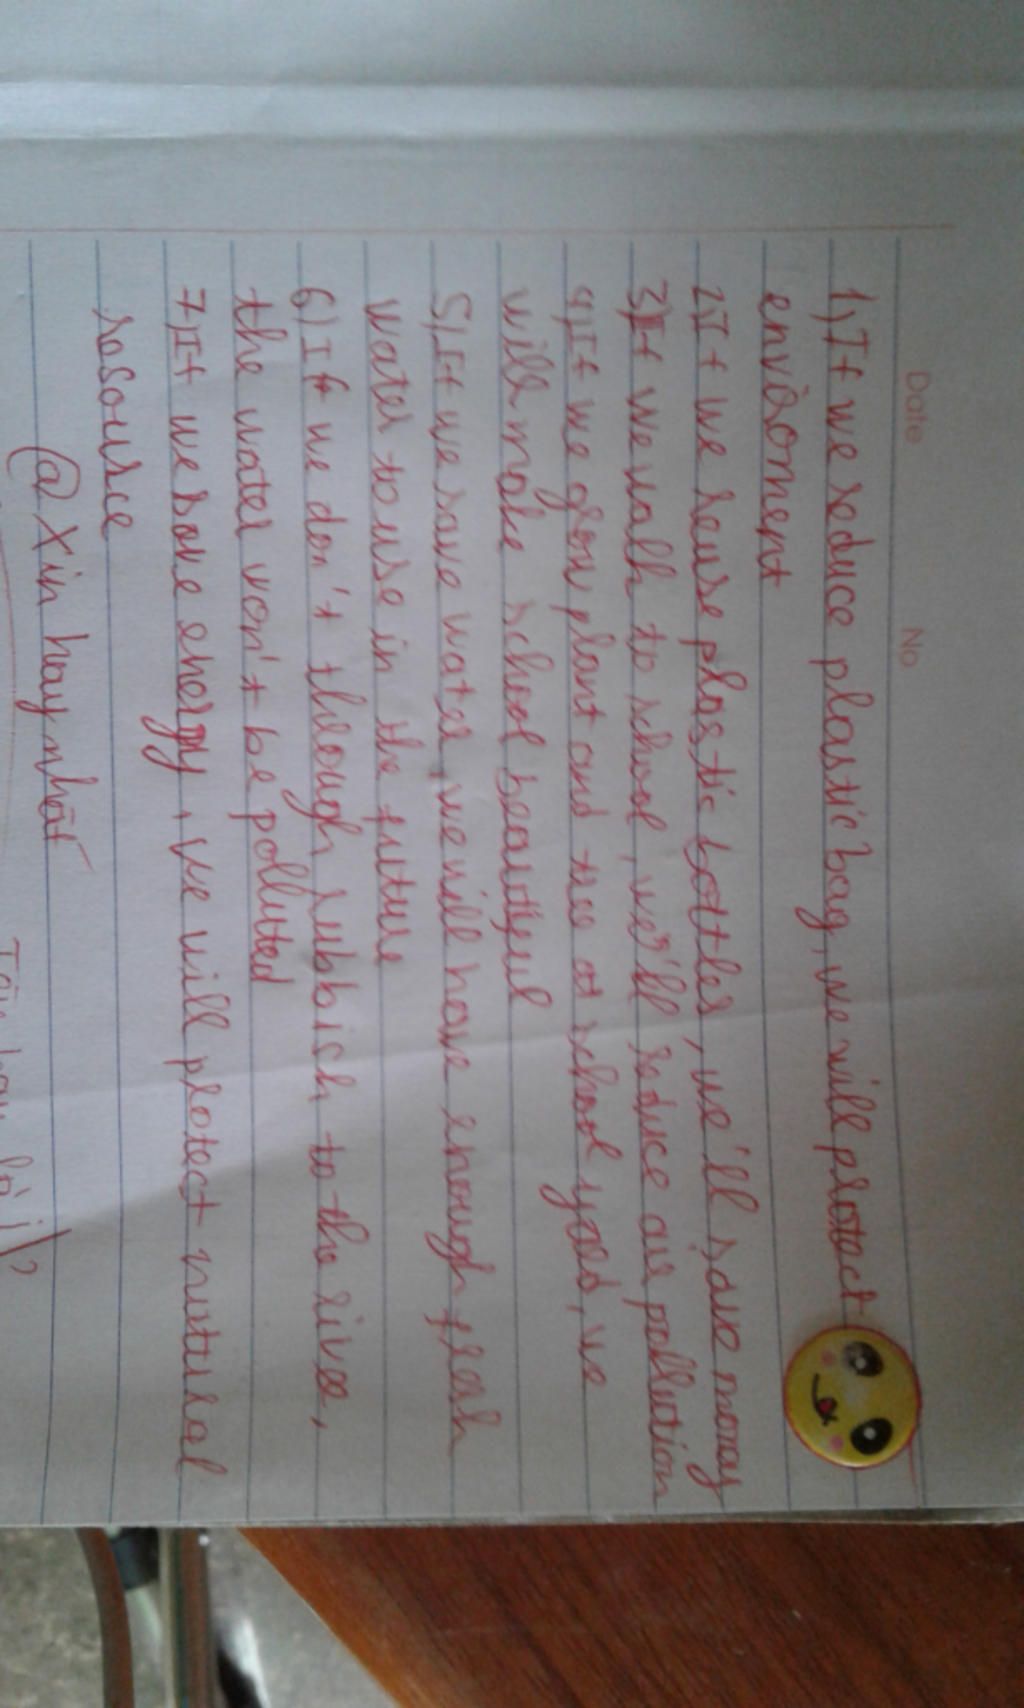 Date
No
1) If we reduce plastic bag, we will protect
enviroment
2) If we reuse plastic bottles, we'll save money
3) If we walk to school, we'll reduce air pollution
4) If we grow plant and tree at school yard, we
will make school beautyful
5) If we save water, we will have enough fresh
water to use in the future
6) If we don't through rubbich to the river,
the water won't be polluted
7) If we save energy, we will protect nutural
resource
@ Xin hay nhất